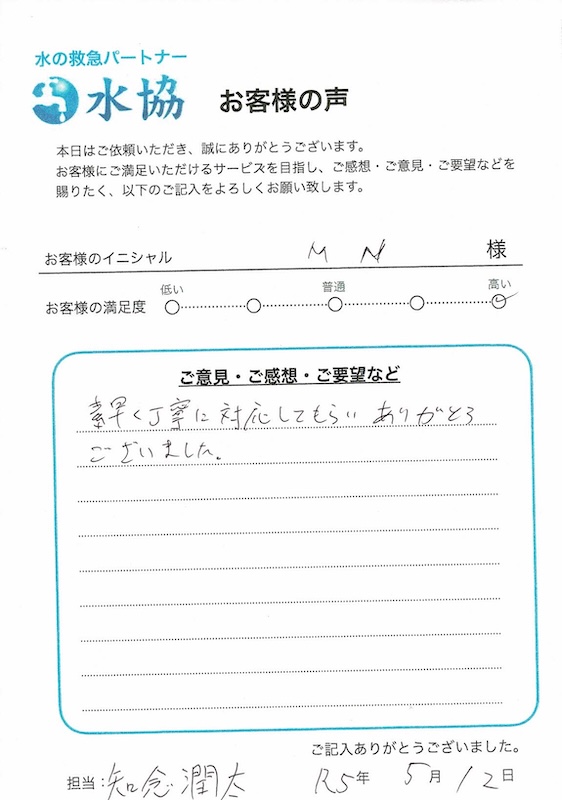 水の救急パートナー
水協 お客様の声
本日はご依頼いただき、誠にありがとうございます。
お客様にご満足いただけるサービスを目指し、ご感想・ご意見・ご要望などを
賜りたく、以下のご記入をよろしくお願い致します。
お客様のイニシャル M N 様
低い 普通 高い
お客様の満足度
ご意見・ご感想・ご要望など
素早く丁寧に対応してもらい ありがとう
ございました。
ご記入ありがとうございました。
担当:知念潤太 R5年 5月12日